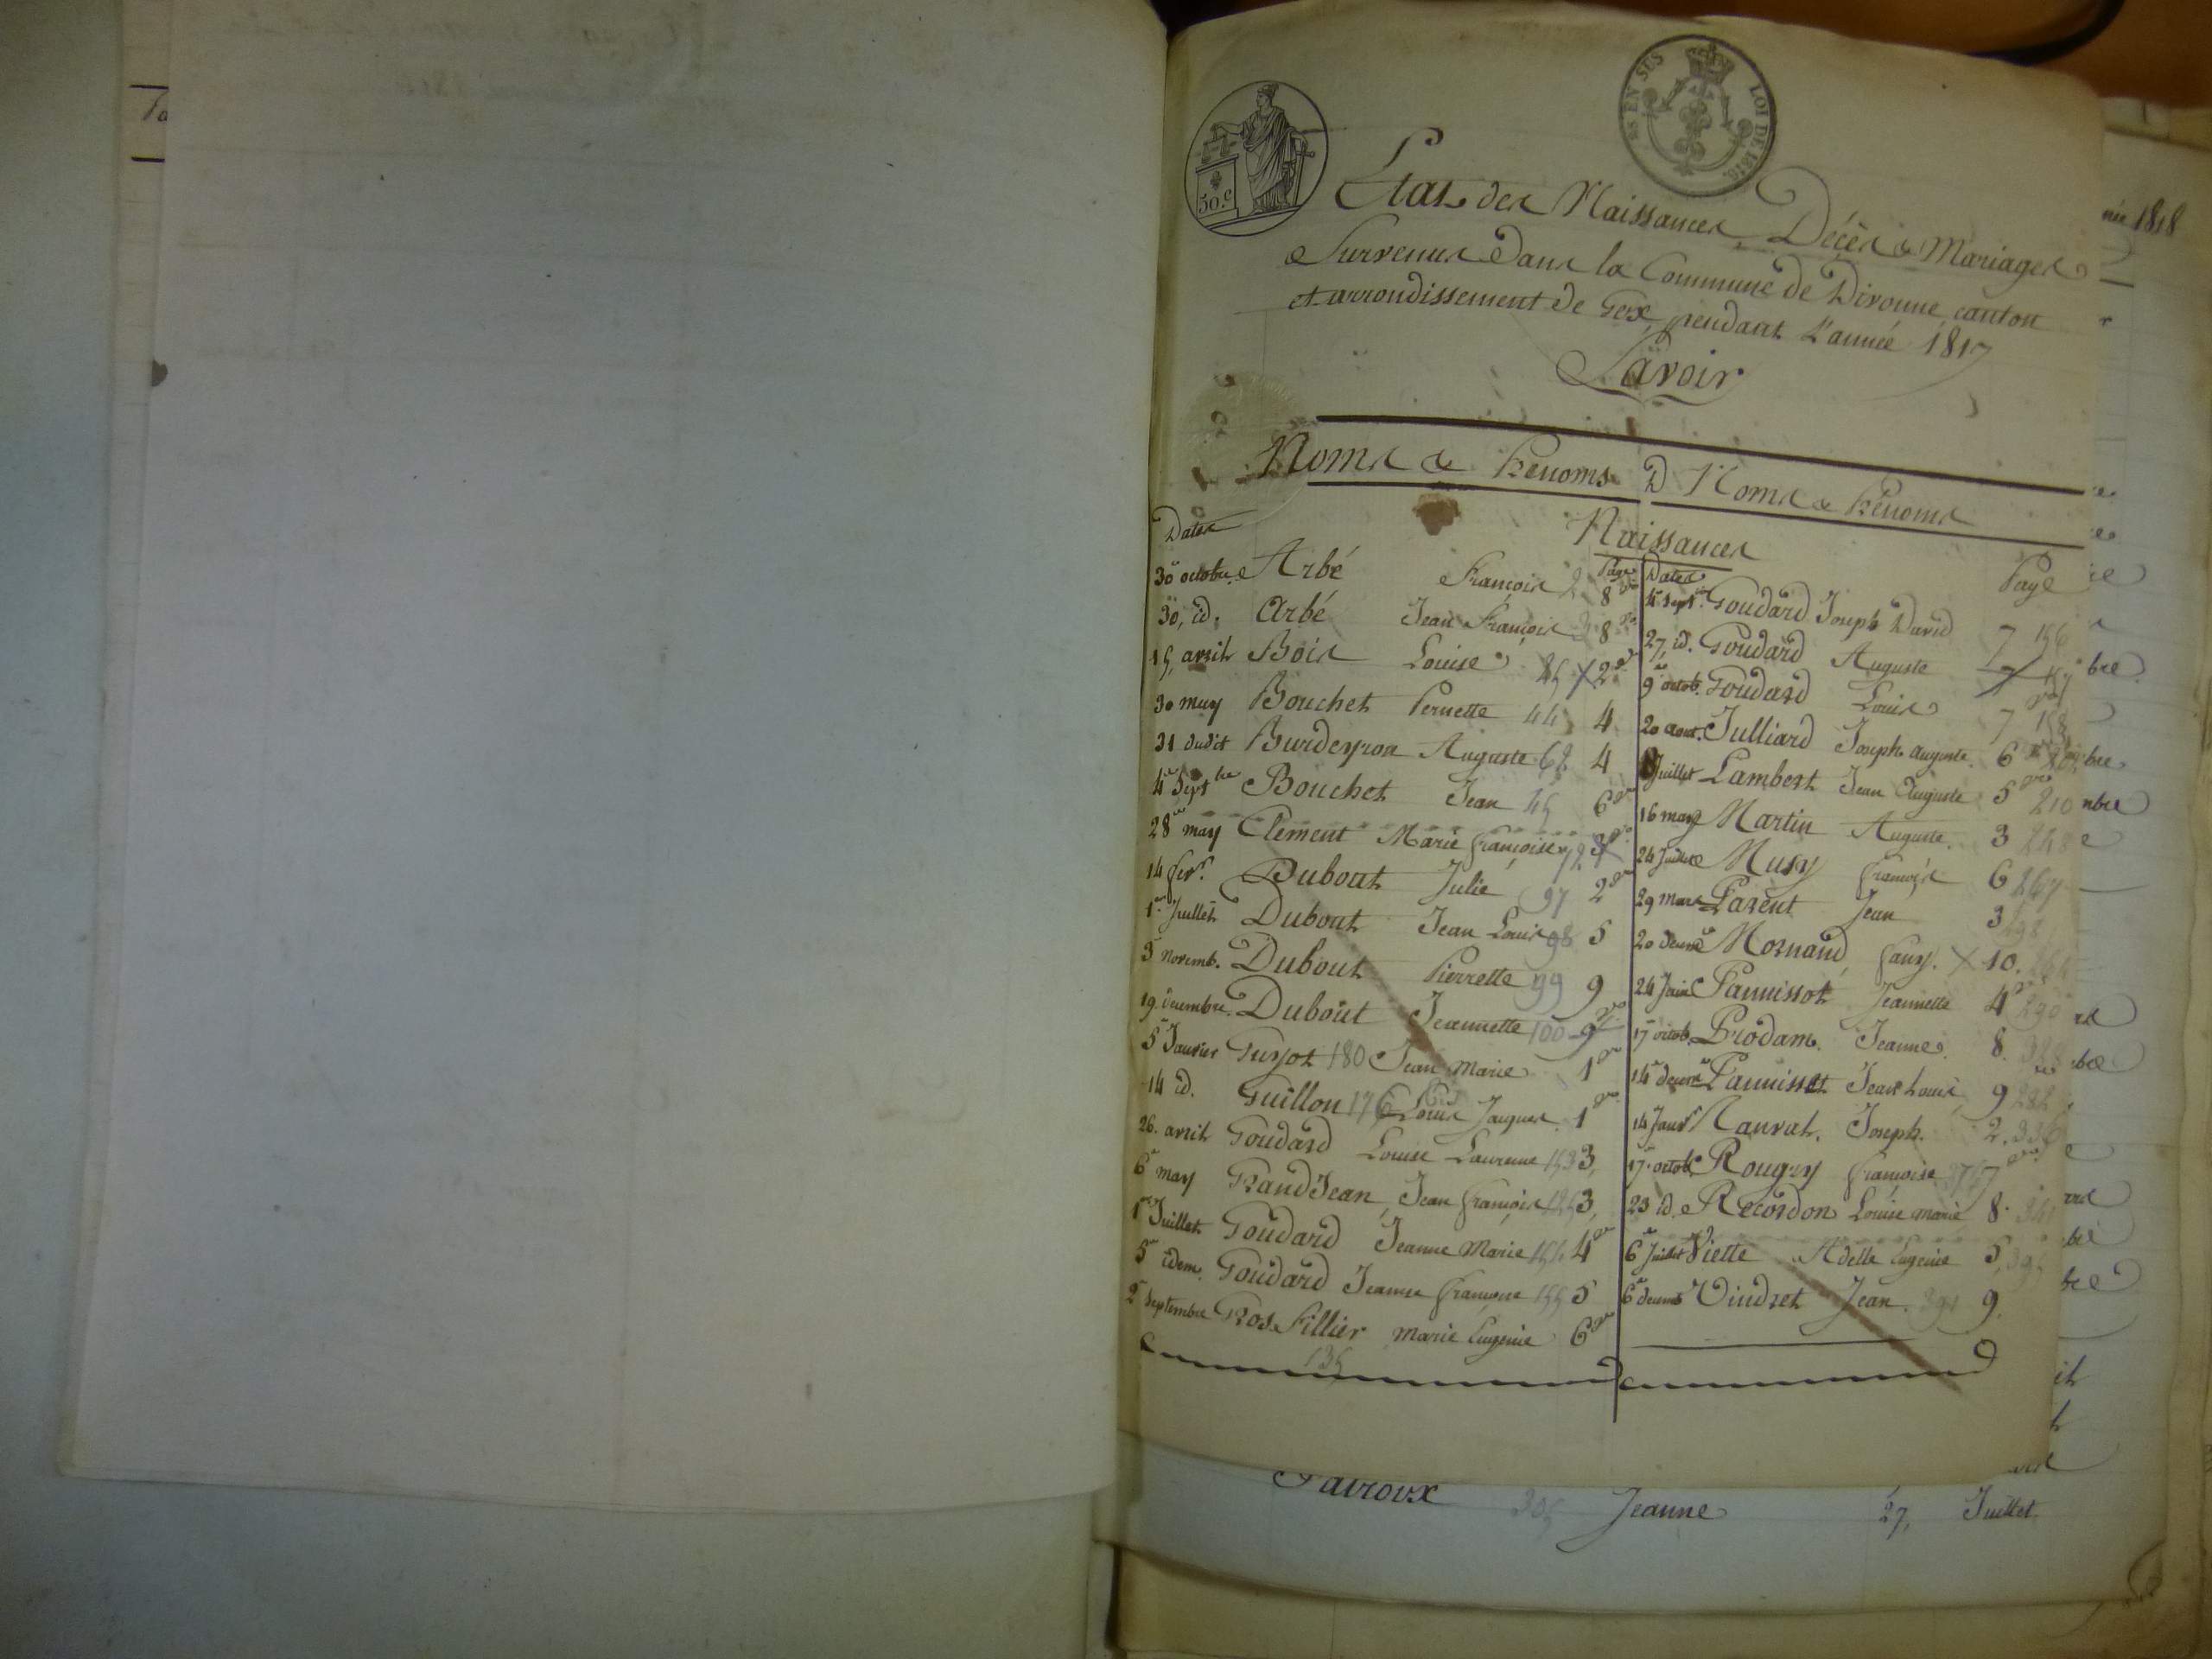 50.c
EN SUS
LOI DE 1816.
Etat des Naissances, Décès & Mariages
Survenus dans la Commune de Divonne, canton
et arrondissement de Gex, pendant L'année 1817
Savoir
Noms & Prénoms
Noms & Prénoms
Naissances
Dates Page
30 octobre Arbé François 2 8
30, id. Arbé Jean François 8
15, avril Bois Louise 2
30 may Bouchet Pernette 44 4
31 dudit Burdeyron Auguste 62 4
4 Septbre Bouchet Jean 45 6
28 may Clement Marie françoise 72 3
14 fevr. Dubout Julie 97 2
1er Juillet Dubout Jean Louis 98 5
3 Novemb. Dubout Pierrette 99 9
19. decembre. Dubout Jeannette 100 9
5 Janvier Guyot 180 Jean Marie 1
14 id. Guillon 176 Louis Jaques 1
26. avril Goudard Louise Laurenne 153 3,
6 may GrandJean, Jean françois 3,
1er Juillet Goudard Jeanne Marie 154 4
5 idem. Goudard Jeanne françoise 155 5
2 Septembre GrosFillier marie Eugenie 6
135
Dates Page
4 Sept. Goudard Joseph David 7 156
27, id. Goudard Auguste 7
9 octob. Goudard Louis 7 158
20 aout. Julliard Joseph auguste. 6
Juillet Lambert Jean Auguste 5 210
16 may Martin Auguste. 3 248
24 Juillet Musy François 6 267
29 Mars Parent Jean 3 298
20 decem Mornand, fany. X 10.
24 Juin Pannissot Jeannette 4 290
17 octob. Prodam. Jeanne. 8.
14 decem Pannisset Jean Louis, 9
14 Janvr Ranvat. Joseph. 2. 336
17. octob. Rougey françoise 7
23 id. Recordon Louise marie 8.
6 Juillet Viette Adelle Eugenie 5,
6 decemb Vindret Jean. 391 9.
Pairoux 305 Jeanne 27, Juillet
1818